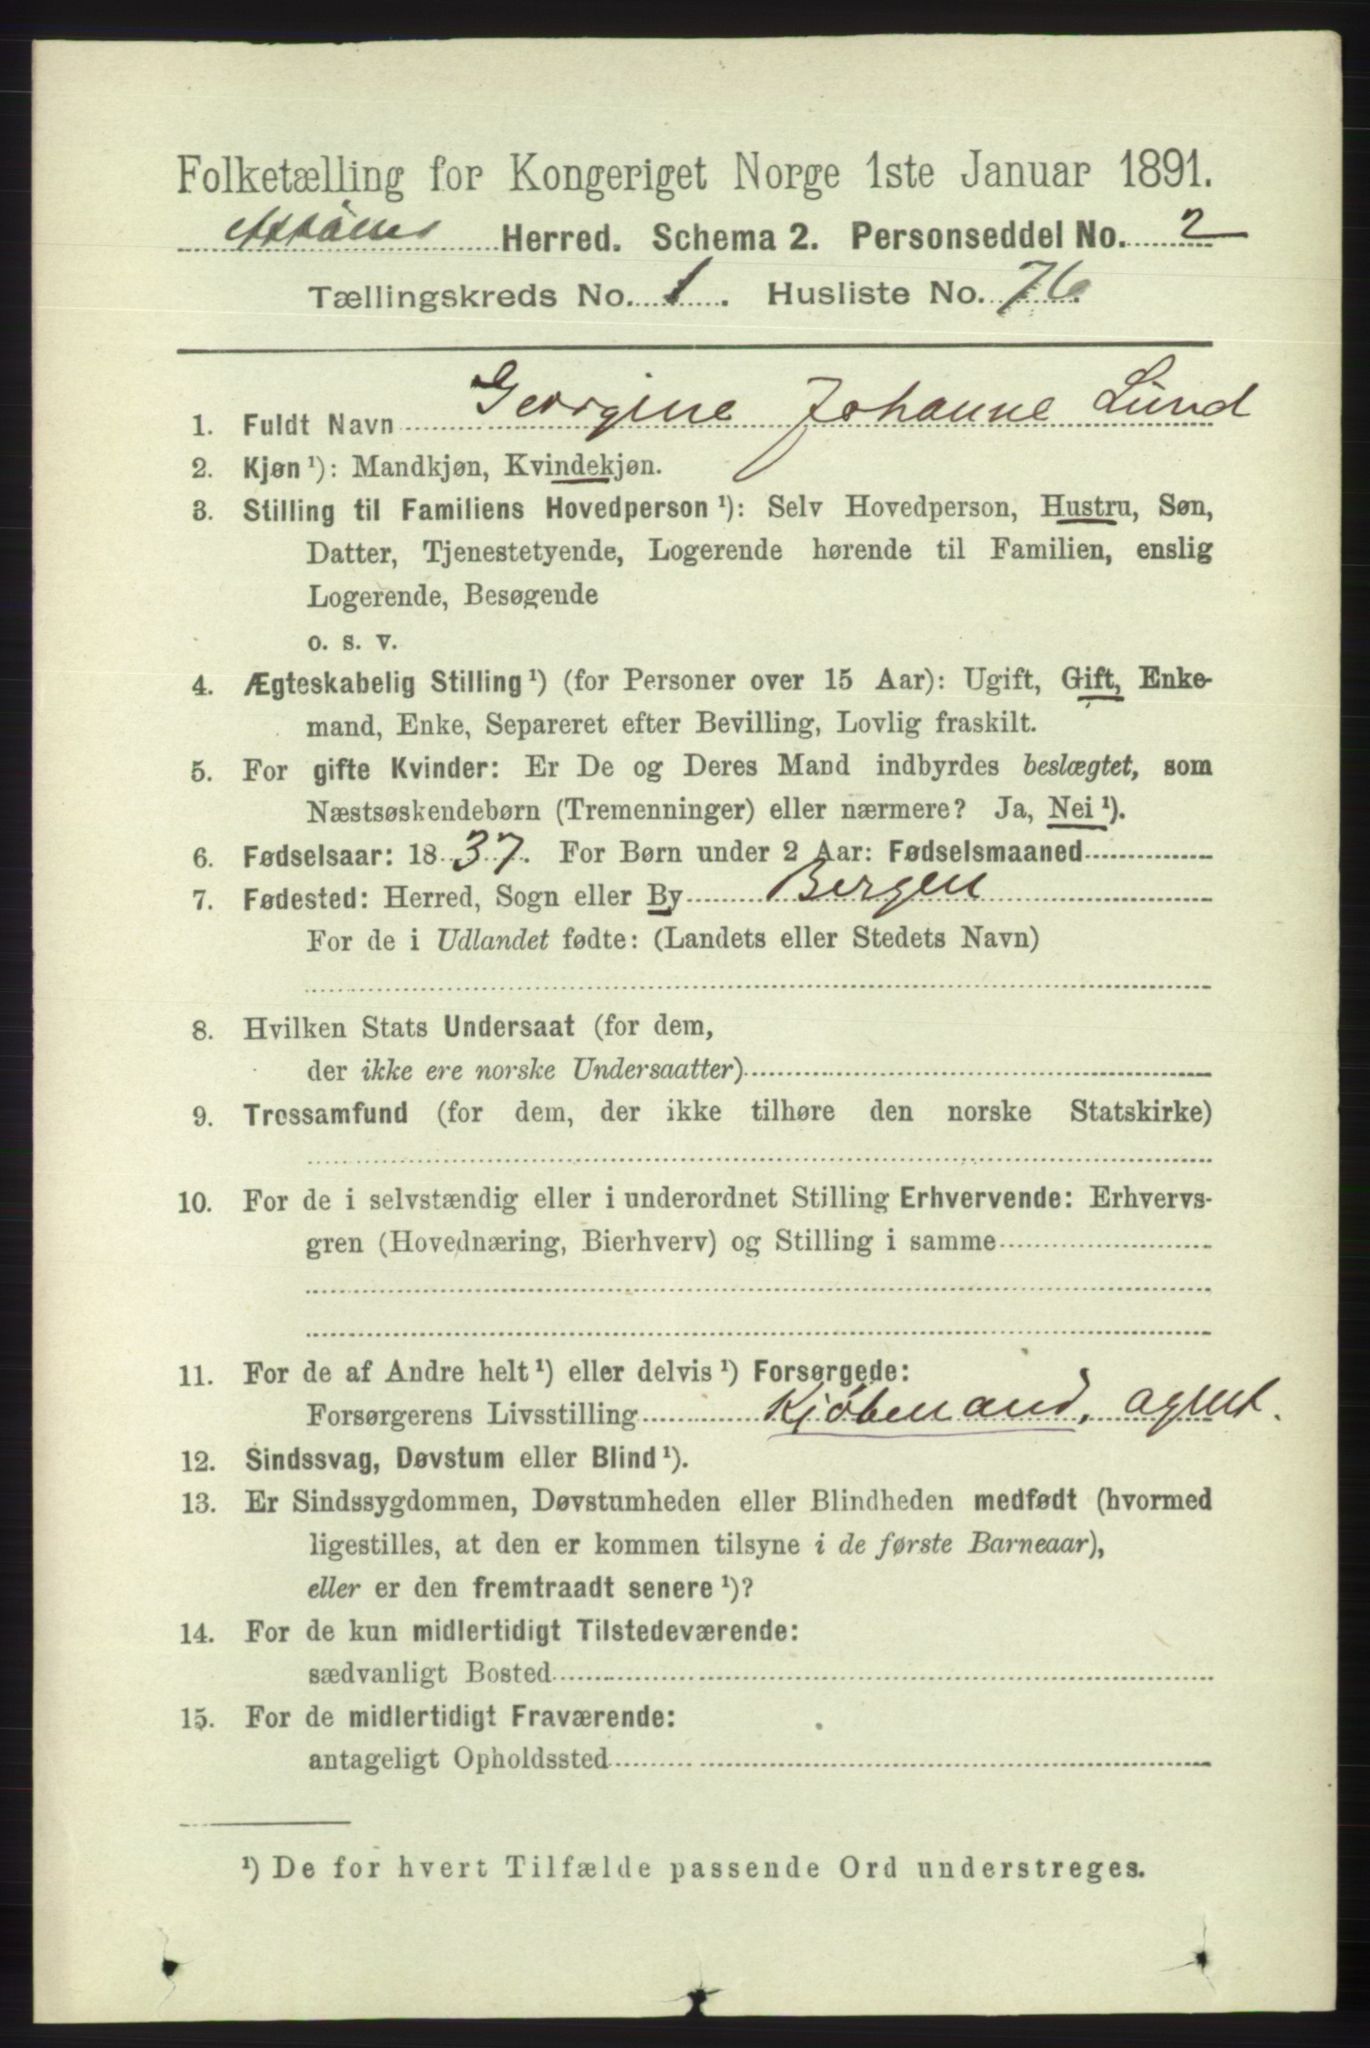 Folketælling for Kongeriget Norge 1ste Januar 1891.
Herred. Schema 2. Personseddel No. 2
Tællingskreds No. 1. Husliste No. 76.
1. Fuldt Navn Georgine Johanne Lund
2. Kjøn ¹): Mandkjøn, Kvindekjøn.
3. Stilling til Familiens Hovedperson ¹): Selv Hovedperson, Hustru, Søn,
Datter, Tjenestetyende, Logerende hørende til Familien, enslig
Logerende, Besøgende
o. s. v.
4. Ægteskabelig Stilling ¹) (for Personer over 15 Aar): Ugift, Gift, Enke-
mand, Enke, Separeret efter Bevilling, Lovlig fraskilt.
5. For gifte Kvinder: Er De og Deres Mand indbyrdes beslægtet, som
Næstsøskendebørn (Tremenninger) eller nærmere? Ja, Nei ¹).
6. Fødselsaar: 1837. For Børn under 2 Aar: Fødselsmaaned
7. Fødested: Herred, Sogn eller By Bergen
For de i Udlandet fødte: (Landets eller Stedets Navn)
8. Hvilken Stats Undersaat (for dem,
der ikke ere norske Undersaatter)
9. Trossamfund (for dem, der ikke tilhøre den norske Statskirke)
10. For de i selvstændig eller i underordnet Stilling Erhvervende: Erhvervs-
gren (Hovednæring, Bierhverv) og Stilling i samme
11. For de af Andre helt ¹) eller delvis ¹) Forsørgede:
Forsørgerens Livsstilling Kjøbmand, agent.
12. Sindssvag, Døvstum eller Blind ¹).
13. Er Sindssygdommen, Døvstumheden eller Blindheden medfødt (hvormed
ligestilles, at den er kommen tilsyne i de første Barneaar),
eller er den fremtraadt senere ¹)?
14. For de kun midlertidigt Tilstedeværende:
sædvanligt Bosted
15. For de midlertidigt Fraværende:
antageligt Opholdssted
¹) De for hvert Tilfælde passende Ord understreges.